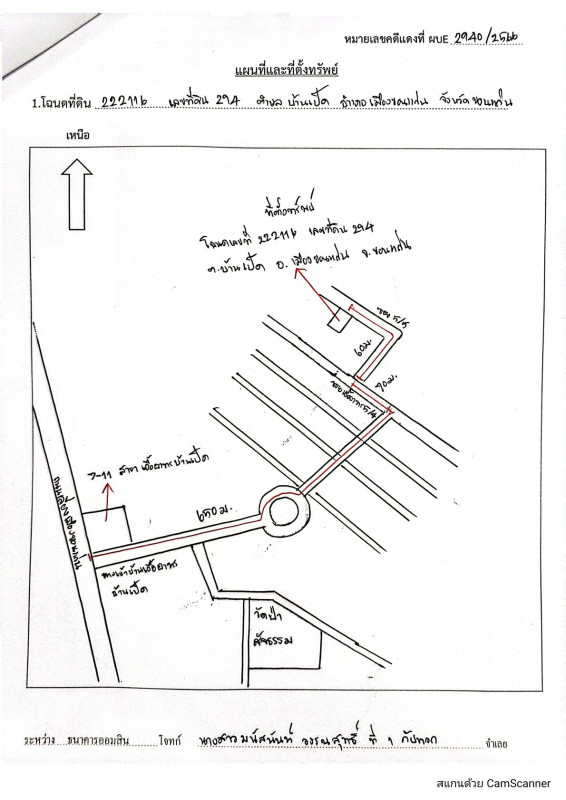 หมายเลขคดีแดงที่ ผบE 2940/2566
แผนที่และที่ตั้งทรัพย์
1.โฉนดที่ดิน 222116 เลขที่ดิน 294 ตำบล บ้านเป็ด อำเภอ เมืองขอนแก่น จังหวัด ขอนแก่น
เหนือ
ที่ตั้งทรัพย์
โฉนดเลขที่ 222116 เลขที่ดิน 294
ต.บ้านเป็ด อ.เมืองขอนแก่น จ.ขอนแก่น
ซอย 5/5
60ม.
70ม.
ซอยเอื้ออาทร 5/4
7-11 สาขา เอื้ออาทรบ้านเป็ด
650 ม.
ถนนเลี่ยงเมืองขอนแก่น
ทางเข้าบ้านเอื้ออาทร
บ้านเป็ด
วัดป่า
สัทธรรม
ระหว่าง ธนาคารออมสิน โจทก์ นางสาว มนัสนันท์ ที่ 1 กับพวก จำเลย
สแกนด้วย CamScanner